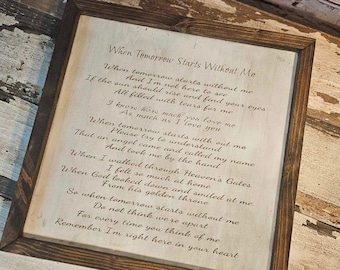 When Tomorrow Starts Without Me
When tomorrow starts without me
And I'm not here to see
If the sun should rise and find your eyes
All filled with tears for me
I know how much you love me
As much as I love you
When tomorrow starts with out me
Please try to understand
That an angel came and called my name
And took me by the hand
When I walked through Heaven's Gates
I felt so much at home
When God looked down and smiled at me
From his golden throne
So when tomorrow starts without me
Do not think we're apart
For every time you think of me
Remember I'm right here in your heart